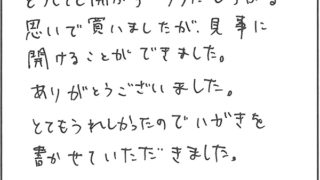 思いで買いましたが、見事に
開けることができました。
ありがとうございました。
とてもうれしかったのでいがきを
書かせていただきました。